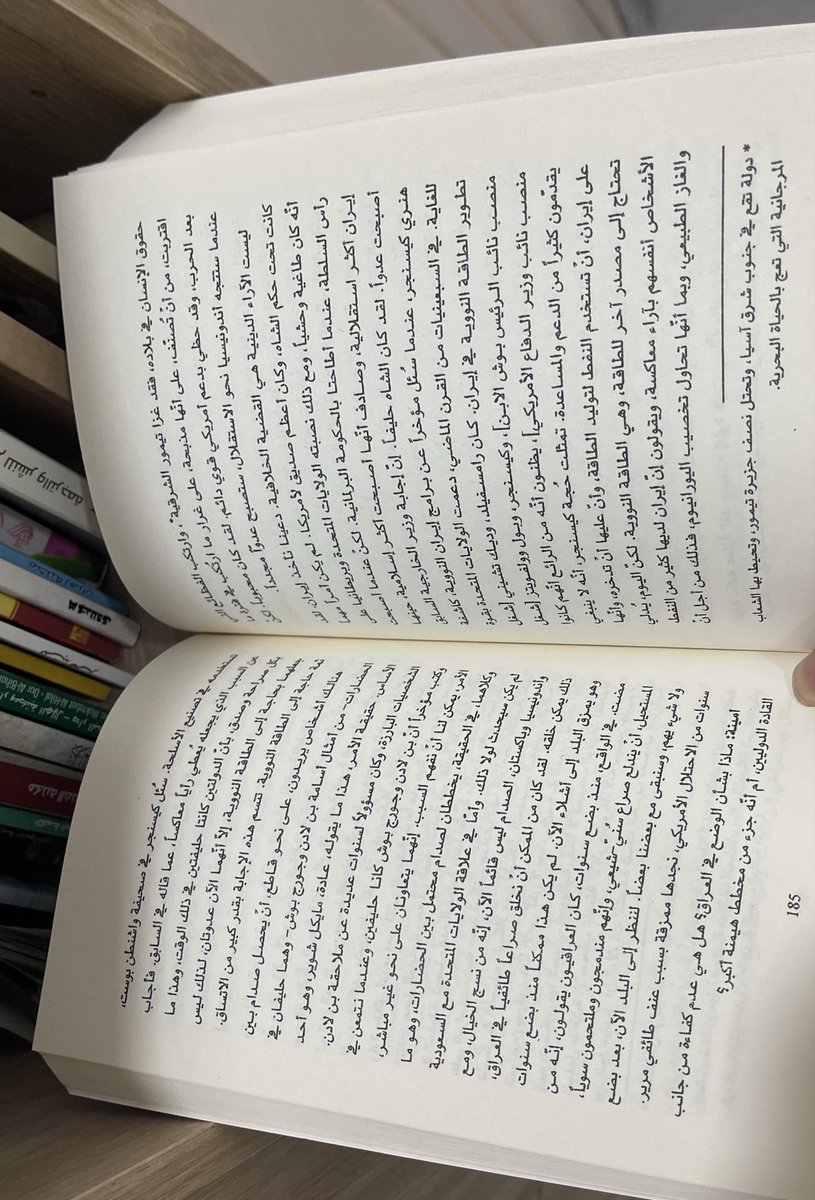 حقوق الإنسان في بلاده، فقد غزا تيمور الشرقية* وارتكب الفظائع التي
اقتربت، من أنْ تُصنّف، على أنّها مذبحة، على غرار ما ارتُكب
بعد الحرب، وقد حظي بدعم أمريكي قوي دائم. لقد كان محبوباً. لكن
عندما ستتجه أندونيسيا نحو الاستقلال، ستصبح عدواً مجدداً.
ليست الآراء الدينية هي القضية الخلافية. دعينا نأخذ إيران. لقد
كانت تحت حكم الشاه، وكان أعظم صديق لأمريكا. لم يكن أمراً مهماً
أنّه كان طاغية وحشياً، ومع ذلك نصبته الولايات المتحدة وبريطانيا على
رأس السلطة، عندما أطاحتا بالحكومة البرلمانية. لكن عندما أصبحت
إيران أكثر استقلالية، وصادف أنّها أصبحت أكثر إسلامية، حينها
أصبحت عدواً. لقد كان الشاه حليفاً. إنّ إجابة وزير الخارجية السابق
هنري كيسنجر، عندما سُئل مؤخراً عن برامج إيران النووية، كاشفة
للغاية. في السبعينيات من القرن الماضي، دعمت الولايات المتحدة بقوة
تطوير الطاقة النووية في إيران. كان رامسفيلد، وديك تشيني [شغل
منصب نائب الرئيس بوش الابن]، وكيسنجر، وبول وولفويتز [شغل
منصب نائب وزير الدفاع الأمريكي]، يظنون أنّه من الرائع أنّهم كانوا
يقدّمون كثيراً من الدعم والمساعدة. تمثلت حُجة كيسنجر، أنّه لا ينبغي
على إيران، أنْ تستخدم النفط لتوليد الطاقة، وأنّ عليها أنْ تدخره، وأنّها
تحتاج إلى مصدر آخر للطاقة، وهي الطاقة النووية. لكنّ اليوم، يُدلي
الأشخاص أنفسهم بآراء معاكسة، ويقولون إنّ إيران لديها كثير من النفط
والغاز الطبيعي، وبما أنّها تحاول تخصيب اليورانيوم، فذلك من أجل أنْ
* دولة تقع في جنوب شرق آسيا، وتحتل نصف جزيرة تيمور، وتحيط بها الشعاب
المرجانية التي تعج بالحياة البحرية.
تستخدمه في تصنيع الأسلحة. سئل كيسنجر في صحيفة واشنطن بوست،
عن السبب الذي يجعله يُعطي رأياً معاكساً، عما قاله في السابق. فأجاب
بكل صراحة وصدق، بأنّ الدولتين كانتا حليفتين في ذلك الوقت، وهذا ما
جعلها بحاجة إلى الطاقة النووية، إلاّ أنّهما الآن عدوتان، لذلك ليس
ثمة حاجة إلى الطاقة النووية. تتسم هذه الإجابة بقدر كبير من الاتساق.
هنالك أشخاص يريدون، على نحو قاطع، أنْ يحصل صدام بين
الحضارات- من أمثال أسامة بن لادن وجورج بوش- وهما حليفان في
الأساس. حقيقة الأمر، هذا ما يقوله، عادة، مايكل شوير، وهو أحد
الشخصيات البارزة، وكان مسؤولاً لسنوات عديدة عن ملاحقة بن لادن.
وكتب مؤخراً أنّ بن لادن وجورج بوش كانا حليفين، وعندما نتمعن في
الأمر، يمكن لنا أنْ نفهم السبب. إنّهما يتعاونان على نحو غير مباشر،
وكلاهما، في الحقيقة، يخططان لصدام محتمل بين الحضارات، وهو ما
لم يكن سيحدث لولا ذلك. وأمّا في علاقة الولايات المتحدة مع السعودية
وأندونيسيا وباكستان، الصدام ليس قائماً الآن، إنّه من نسج الخيال، ومع
ذلك يمكن خلقه. لقد كان من الممكن أنْ نخلق صراعاً طائفياً في العراق،
وهو يمزق البلد إلى أشلاء الآن. لم يكن هذا ممكناً منذ بضع سنوات
مضت. في الواقع، منذ بضع سنوات، كان العراقيون يقولون، إنّه من
المستحيل أنْ يندلع صراع سُنّي-شيعي، وإنهم مندمجون وملتحمون سوياً،
ولا شيء يهم، وسنبقى مع بعضنا بعضاً. لننظر إلى البلد الآن، بعد بضع
سنوات من الاحتلال الأمريكي، نجدها ممزقة بسبب عنف طائفي مرير.
أمينة: ماذا بشأن الوضع في العراق؟ هل هي عدم كفاءة من جانب
القادة الدوليين، أم أنّه جزء من مخطط هيمنة أكبر؟
185